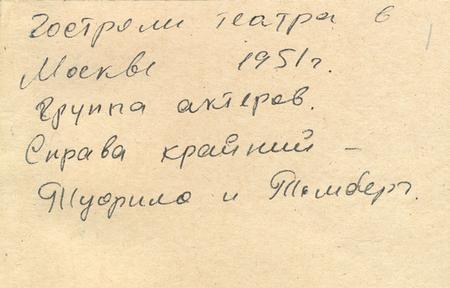 Гострали театра в
Москве 1951г.
группа актеров.
Справа крайний –
Туорила и Томберг.